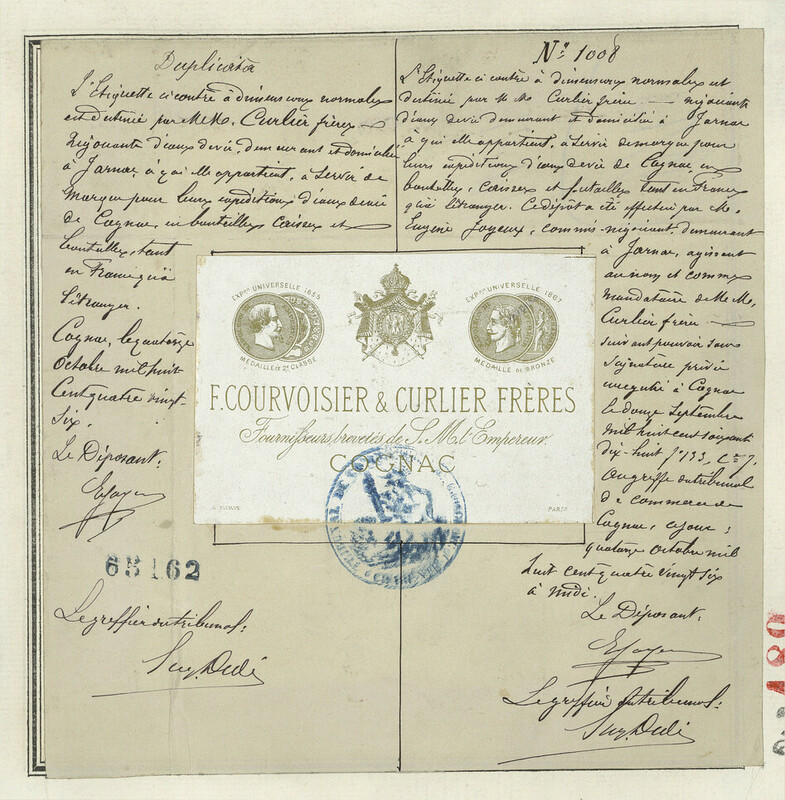 Duplicata
L'Etiquette ci contre à dimensions normales
est destinée par M.M. Curlier frères
Négociants d'eaux de vie, demeurant et domiciliés
à Jarnac, à qui elle appartient, à servir de
marque pour leurs expéditions d'eaux de vie
de Cognac, en bouteilles Caisses et
tant
en France qu'à
l'étranger.
Cognac, le quatorze
Octobre mil huit
Cent quatre vingt-
Six.
Le Déposant:
65162
Le greffier du tribunal:
N° 1008
L'Etiquette ci contre à dimensions normales est
destinée par M M. Curlier frères négociants
d'eaux de vie demeurant et domiciliés à Jarnac
à qui elle appartient, à servir de marque pour
leurs expéditions d'eaux de vie de Cognac en
bouteilles, caisses et futailles tant en France
qu'à l'étranger. Ce dépôt a été effectué par M.
Eugène Joyeux, commis-négociant demeurant
à Jarnac, agissant
au nom et comme
mandataire de M M.
Curlier frères
suivant pouvoir sous
signature privée
enregistré à Cognac
le douze Septembre
mil huit cent soixante
dix-huit f° 133, C. 7.
au greffe du tribunal
de commerce de
Cognac, ce jour:
quatorze Octobre mil
huit cent quatre vingt six
à midi.
Le Déposant,
Le greffier du tribunal:
EXPON UNIVERSELLE 1855
MEDAILLE DE 2E CLASSE
EXPON UNIVERSELLE 1867
MEDAILLE DE BRONZE
F. COURVOISIER & CURLIER FRÈRES
Fournisseurs brevetés de S. Mté l'Empereur.
COGNAC
PARIS